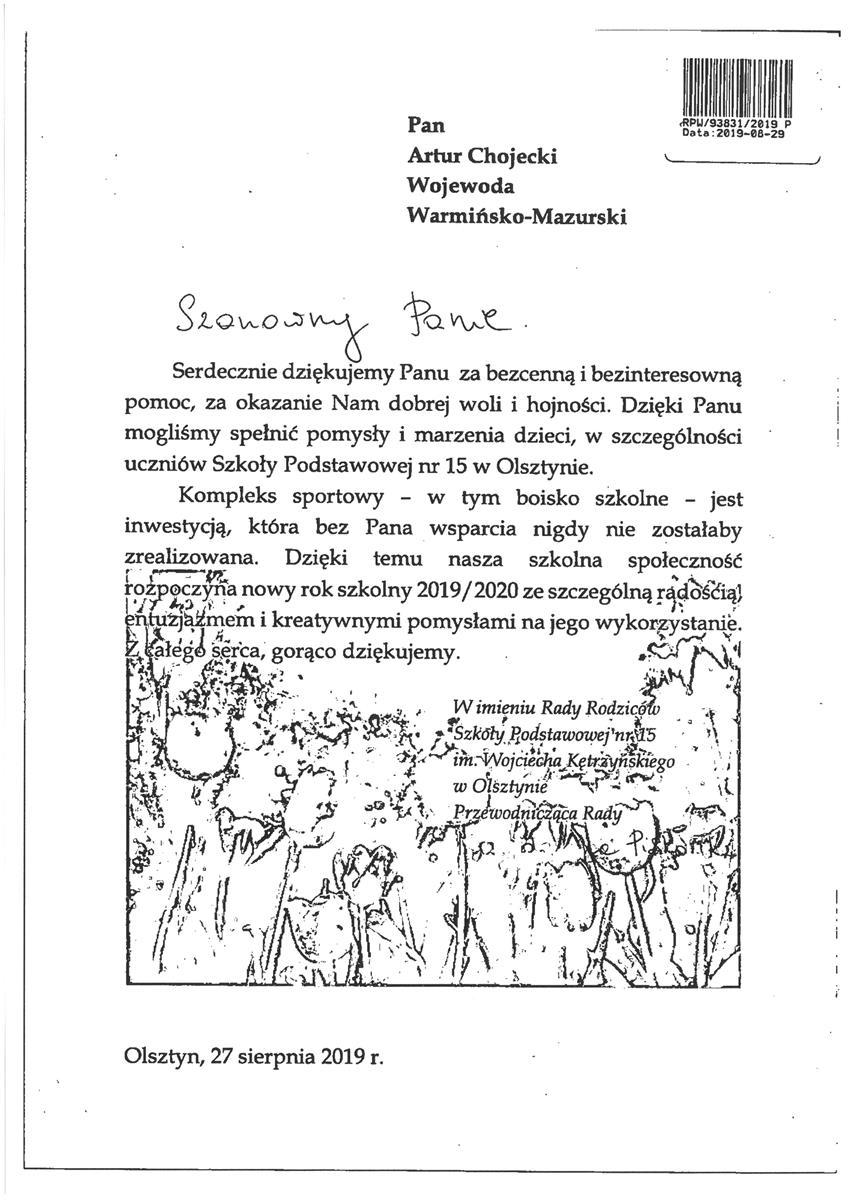 RPW/93831/2019 P
Data:2019-08-29
Pan
Artur Chojecki
Wojewoda
Warmińsko-Mazurski
Szanowny Panie.
Serdecznie dziękujemy Panu za bezcenną i bezinteresowną
pomoc, za okazanie Nam dobrej woli i hojności. Dzięki Panu
mogliśmy spełnić pomysły i marzenia dzieci, w szczególności
uczniów Szkoły Podstawowej nr 15 w Olsztynie.
Kompleks sportowy – w tym boisko szkolne – jest
inwestycją, która bez Pana wsparcia nigdy nie zostałaby
zrealizowana. Dzięki temu nasza szkolna społeczność
rozpoczyna nowy rok szkolny 2019/2020 ze szczególną radością,
entuzjazmem i kreatywnymi pomysłami na jego wykorzystanie.
Z całego serca, gorąco dziękujemy.
W imieniu Rady Rodziców
Szkoły Podstawowej nr 15
im. Wojciecha Kętrzyńskiego
w Olsztynie
Przewodnicząca Rady
Olsztyn, 27 sierpnia 2019 r.